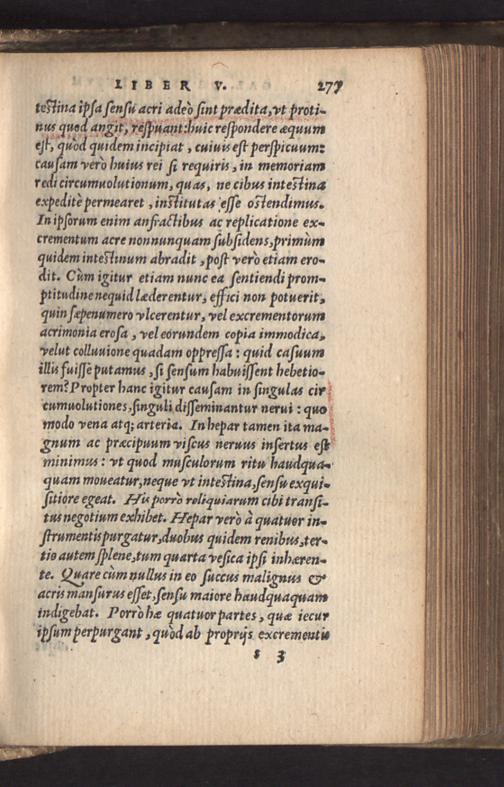 LIBER V. 277
testina ipsa sensu acri adeò sint prædita, vt proti-
nus quod angit, respuant: huic respondere æquum
est, quòd quidem incipiat, cuiuis est perspicuum:
causam verò huius rei si requiris, in memoriam
redi circumuolutionum, quas, ne cibus intestina
expeditè permearet, institutas esse ostendimus.
In ipsorum enim anfractibus ac replicatione ex-
crementum acre nonnunquam subsidens, primum
quidem intestinum abradit, post verò etiam ero-
dit. Cùm igitur etiam nunc ea sentiendi prom-
ptitudine nequid læderentur, effici non potuerit,
quin sæpenumero vlcerentur, vel excrementorum
acrimonia erosa, vel eorundem copia immodica,
velut colluuione quadam oppressa: quid casuum
illis fuisse putamus, si sensum habuissent hebetio-
rem? Propter hanc igitur causam in singulas cir
cumuolutiones, singuli disseminantur nerui: quo
modo vena atq; arteria. In hepar tamen ita ma-
gnum ac præcipuum viscus neruus insertus est
minimus: vt quod musculorum ritu haudqua-
quam moueatur, neque vt intestina, sensu exqui-
sitiore egeat. His porrò reliquiarum cibi transi-
tus negotium exhibet. Hepar verò à quatuor in-
strumentis purgatur, duobus quidem renibus, ter-
tio autem splene, tum quarta vesica ipsi inhæren-
te. Quare cùm nullus in eo succus malignus &
acris mansurus esset, sensu maiore haudquaquam
indigebat. Porrò hæ quatuor partes, quæ iecur
ipsum perpurgant, quòd ab proprijs excrementis
s 3